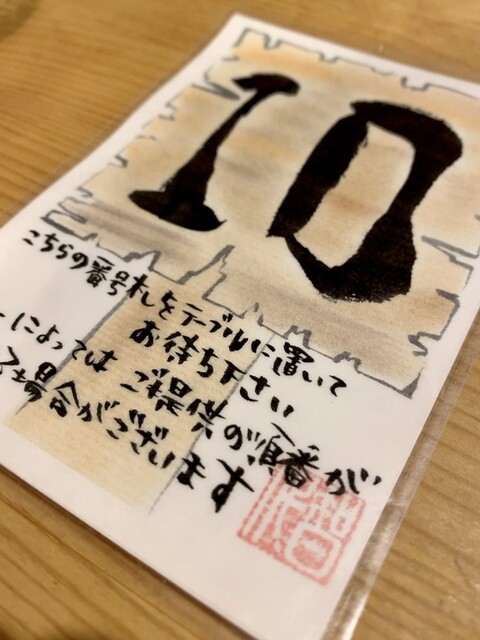 10
こちらの番号札をテーブルに置いて
お待ち下さい
ーによっては ご提供の順番が
る場合がございます